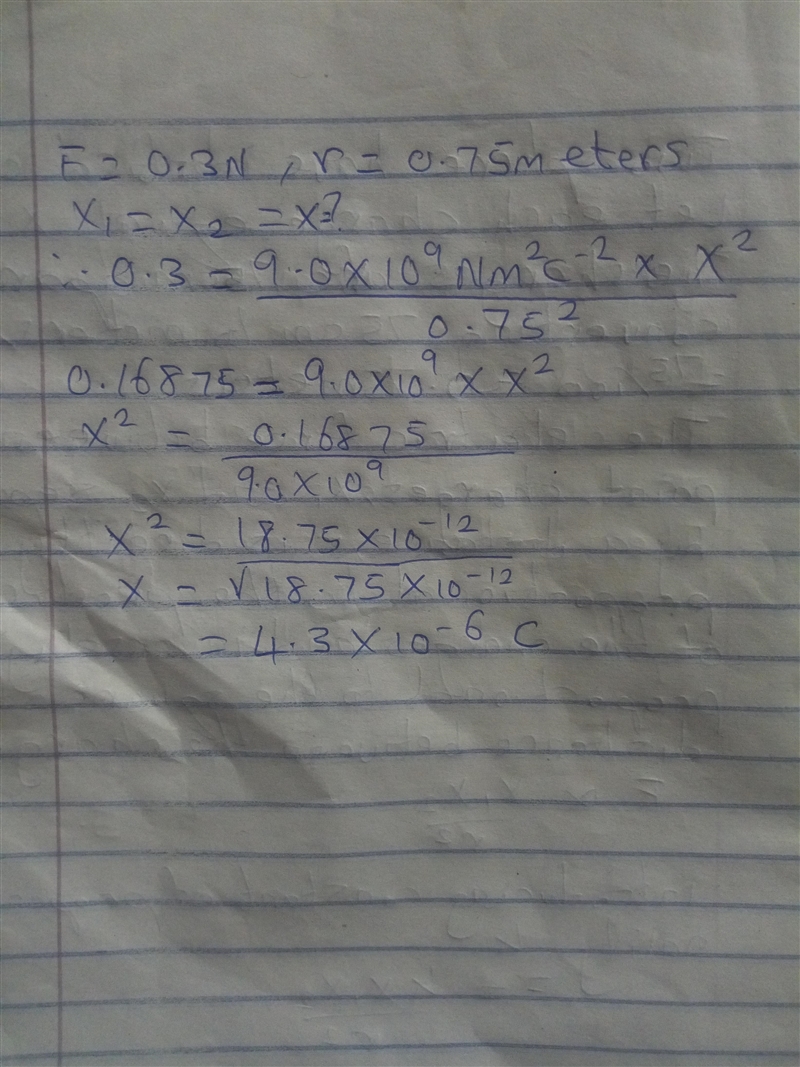 F = 0.3N , r = 0.75meters
X₁ = X₂ = X=?
∴ 0.3 = 9.0 X 10⁹ Nm²C⁻² x X²
0.75²
0.16875 = 9.0X10⁹ x X²
X² = 0.16875
9.0X10⁹
X² = 18.75 X10⁻¹²
X = √18.75 X10⁻¹²
= 4.3 X10⁻⁶ C